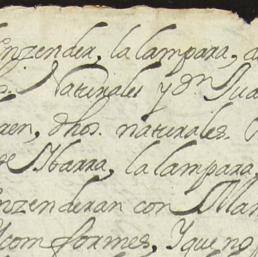 Enzender, la lampara, a
Naturales y dn Jua
ren, dhos. naturales.
Ybarra, la lampara,
enzenderan con Mar
com formes, Y que no